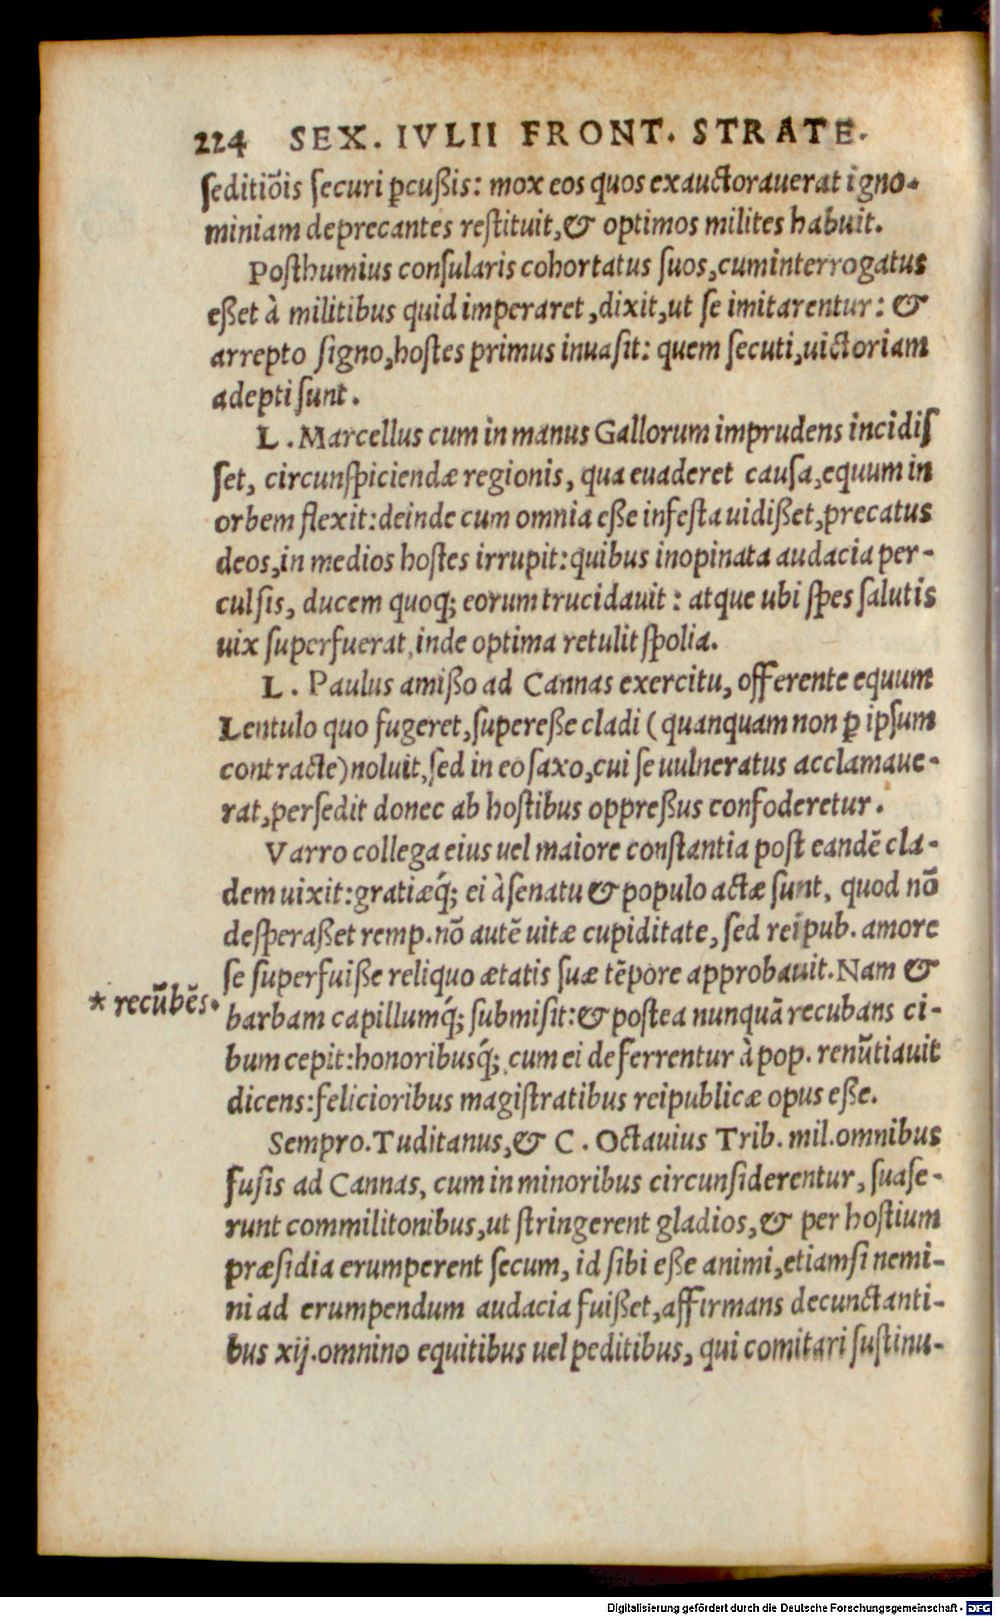 224 SEX. IVLII FRONT. STRATE.
ſeditiõis ſecuri ꝑcußis: mox eos quos exauctorauerat igno-
miniam deprecantes reſtituit,& optimos milites habuit.
Poſthumius conſularis cohortatus ſuos,cum interrogatus
eßet à militibus quid imperaret,dixit,ut ſe imitarentur: &
arrepto ſigno,hoſtes primus inuaſit: quem ſecuti,uictoriam
adepti ſunt.
L. Marcellus cum in manus Gallorum imprudens incidiſ
ſet, circunſpiciendæ regionis, qua euaderet cauſa,equum in
orbem flexit:deinde cum omnia eße infeſta uidißet,precatus
deos,in medios hoſtes irrupit:quibus inopinata audacia per-
culſis, ducem quoq; eorum trucidauit: atque ubi ſpes ſalutis
uix ſuperfuerat,inde optima retulit ſpolia.
L. Paulus amißo ad Cannas exercitu, offerente equum
Lentulo quo fugeret,ſupereße cladi (quanquam non ꝑ ipſum
contracte)noluit,ſed in eo ſaxo,cui ſe uulneratus acclamaue-
rat,perſedit donec ab hoſtibus oppreßus confoderetur.
Varro collega eius uel maiore conſtantia poſt eandẽ cla-
dem uixit:gratiæq́; ei à ſenatu & populo actæ ſunt, quod nõ
deſperaßet remp.nõ autẽ uitæ cupiditate, ſed reipub. amore
ſe ſuperfuiße reliquo ætatis ſuæ tẽpore approbauit.Nam &
* recũbẽs.
barbam capillumq́; ſubmiſit:& poſtea nunquã recubans ci-
bum cepit:honoribusq́; cum ei deferrentur à pop. renũtiauit
dicens:felicioribus magiſtratibus reipublicæ opus eße.
Sempro.Tuditanus,& C. Octauius Trib. mil.omnibus
fuſis ad Cannas, cum in minoribus circunſiderentur, ſuaſe-
runt commilitonibus,ut ſtringerent gladios,& per hoſtium
præſidia erumperent ſecum, id ſibi eße animi,etiamſi nemi-
ni ad erumpendum audacia fuißet,affirmans de cunctanti-
bus xij.omnino equitibus uel peditibus, qui comitari ſuſtinu-
Digitalisierung gefördert durch die Deutsche Forschungsgemeinschaft - DFG